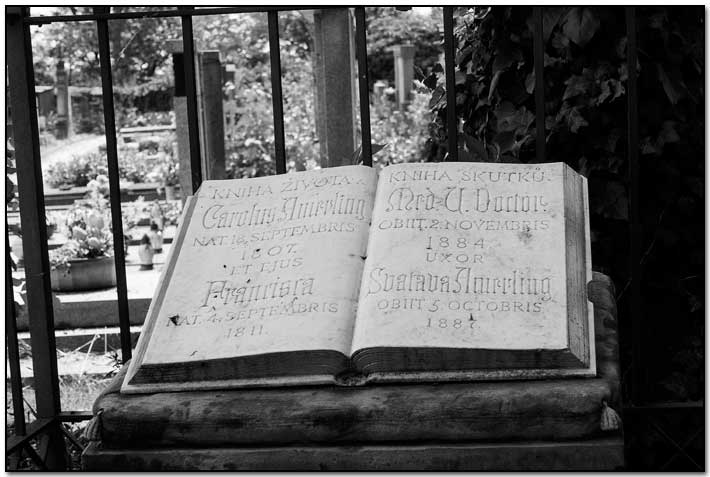 KNIHA ŽIVOTA
Carolus Amerling
NAT. 18. SEPTEMBRIS
1807.
ET EJUS
Francisca
NAT. 4. SEPTEMBRIS
1811.
KNIHA SKUTKŮ
Med. U. Doctor.
OBIIT 2. NOVEMBRIS
1884
UXOR
Svatava Amerling
OBIIT 5. OCTOBRIS
1887.